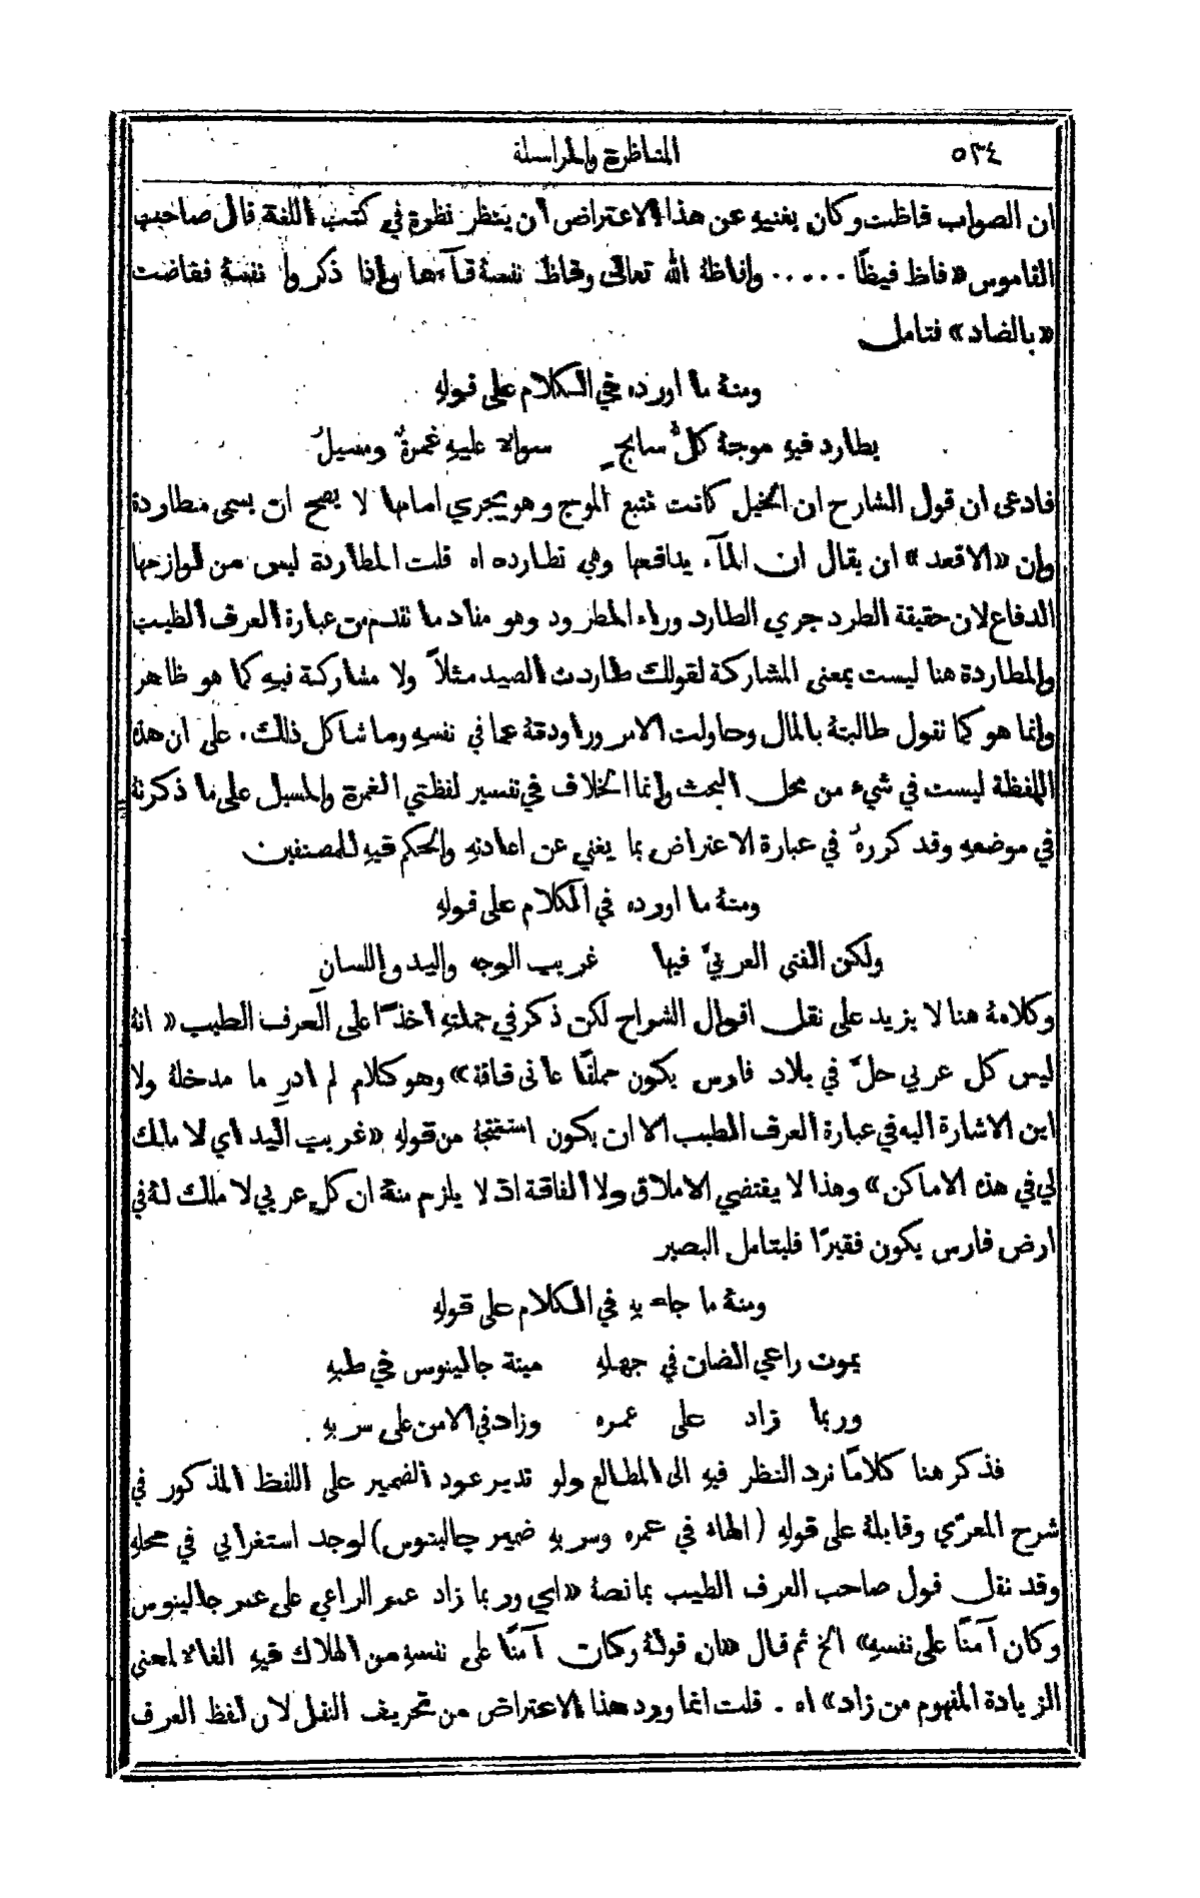 ٥٣٤
المناظرة والمراسلة
ان الصواب فاظت وكان يغنيهِ عن هذا الاعتراض أن ينظر نظرة في كتب اللغة قال صاحب
القاموس «فاظ فيظًا ..... وافاظهُ الله تعالى وفاظ نفسهُ قآءها واذا ذكروا نفسهُ ففاضت
«بالضاد» فتامل
ومنهُ ما اورده في الكلام على قولهِ
يطارد فيهِ موجهُ كلُّ سابحٍ سوالا عليهِ غمرةٌ ومسيلُ
فادعى ان قول الشارح ان الخيل كانت تتبع الموج وهو يجري امامها لا يصح ان يسمى مطاردة
وان «الاقعد» ان يقال ان المآء يدافعها وهي تطارده اه قلت المطاردة ليس من لوازمها
الدفاع لان حقيقة الطرد جري الطارد وراء المطرود وهو مفاد ما تقدم من عبارة العرف الطيب
والمطاردة هنا ليست بمعنى المشاركة لقولك طاردت الصيد مثلاً ولا مشاركة فيهِ كما هو ظاهر
وانما هو كما تقول طالبتهُ بالمال وحاولت الامر وراودتهُ عما في نفسهِ وما شاكل ذلك. على ان هذه
اللفظة ليست في شيء من محل البحث وانما الخلاف في تفسير لفظتي الغمرة والمسيل على ما ذكرتهُ
في موضعهِ وقد كررهُ في عبارة الاعتراض بما يغني عن اعادتهِ والحكم فيهِ للمصنفين
ومنهُ ما اورده في الكلام على قولهِ
ولكن الفتى العربيّ فيها غريب الوجه واليد واللسانِ
وكلامهُ هنا لا يزيد على نقل اقوال الشراح لكن ذكر في جملتهِ أخذًا على العرف الطيب «انهُ
ليس كل عربي حلّ في بلاد فارس يكون مملقًا عانى فاقة» وهو كلام لم ادرِ ما مدخلهُ ولا
اين الاشارة اليه في عبارة العرف الطيب الا ان يكون استنتجهُ من قولهِ «غريب اليد اي لا ملك
لي في هذه الاماكن» وهذا لا يقتضي الاملاق ولا الفاقة اذ لا يلزم منهُ ان كل عربي لا ملك لهُ في
ارض فارس يكون فقيرًا فليتامل البصير
ومنهُ ما جاء بهِ في الكلام على قولهِ
يموت راعي الضان في جهلهِ ميتة جالينوس في طبهِ
وربما زاد على عمره وزاد في الامن على سربهِ.
فذكر هنا كلامًا نرد النظر فيهِ الى المطالع ولو تدبر عود الضمير على اللفظ المذكور في
شرح المعرّي وقابلهُ على قولهِ (الهاء في عمره وسربهِ ضمير جالينوس) لوجد استغرابي في محلهِ
وقد نقل قول صاحب العرف الطيب بما نصهُ «اي وربما زاد عمر الراعي على عمر جالينوس
وكان آمنًا على نفسهِ» الخ ثم قال «ان قولهُ وكان آمنًا على نفسهِ من الهلاك فيهِ الغاء لمعنى
الزيادة المفهوم من زاد» اه. قلت انما ورد هذا الاعتراض من تحريف النقل لان لفظ العرف